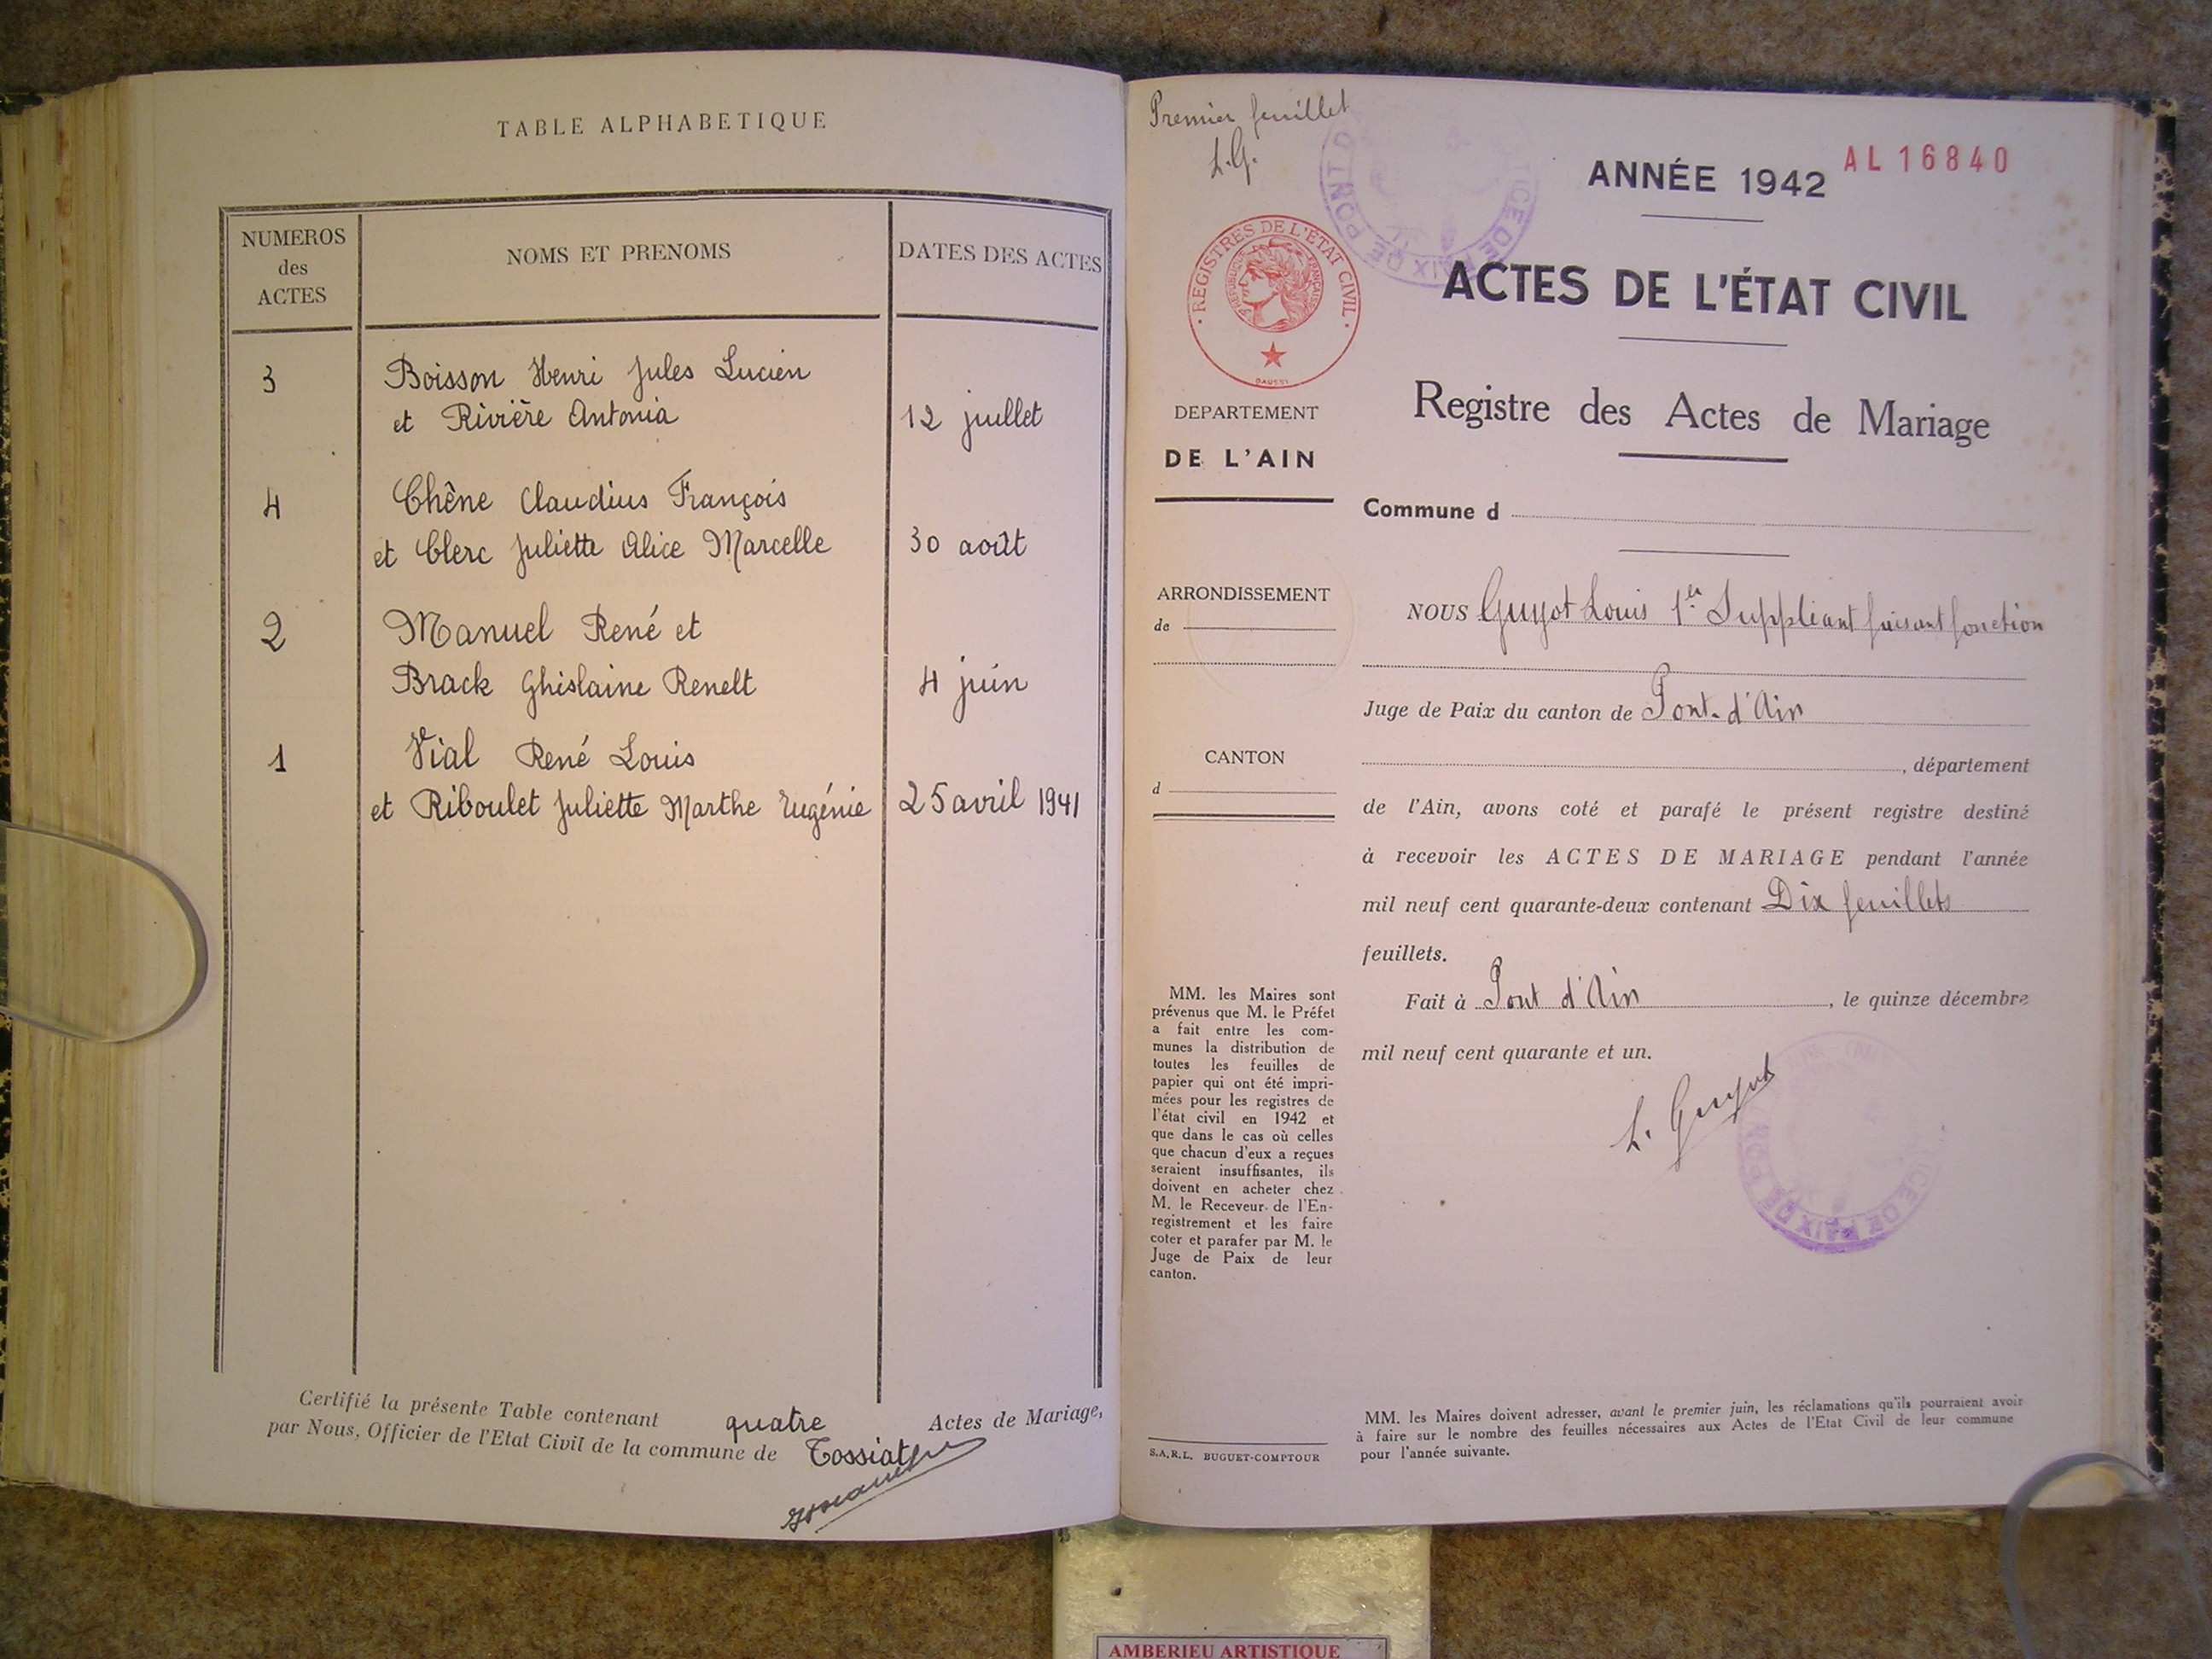 TABLE ALPHABETIQUE
NUMEROS
des
ACTES
NOMS ET PRENOMS
DATES DES ACTES
3
Boisson Henri Jules Lucien
et Rivière Antonia
12 juillet
4
Chêne Claudius François
et Clerc Juliette Alice Marcelle
30 août
2
Manuel René et
Brack Ghislaine Renelt
4 juin
1
Vial René Louis
et Riboulet Juliette Marthe Eugénie
25 avril 1941
Certifié la présente Table contenant quatre Actes de Mariage,
par Nous, Officier de l'Etat Civil de la commune de Tossiat
Premier feuillet
L.G.
ANNÉE 1942
AL 16840
REGISTRES DE L'ÉTAT CIVIL
RÉPUBLIQUE FRANÇAISE
ACTES DE L'ÉTAT CIVIL
Registre des Actes de Mariage
DEPARTEMENT
DE L'AIN
Commune d
ARRONDISSEMENT
de
CANTON
d
NOUS Guyot Louis 1er Suppléant faisant fonction
Juge de Paix du canton de Pont-d'Ain
, département
de l'Ain, avons coté et parafé le présent registre destiné
à recevoir les ACTES DE MARIAGE pendant l'année
mil neuf cent quarante-deux contenant Dix feuillets
feuillets.
Fait à Pont d'Ain, le quinze décembre
mil neuf cent quarante et un.
L. Guyot
MM. les Maires sont
prévenus que M. le Préfet
a fait entre les com-
munes la distribution de
toutes les feuilles de
papier qui ont été impri-
mées pour les registres de
l'état civil en 1942 et
que dans le cas où celles
que chacun d'eux a reçues
seraient insuffisantes, ils
doivent en acheter chez
M. le Receveur de l'En-
registrement et les faire
coter et parafer par M. le
Juge de Paix de leur
canton.
S.A.R.L. BUGUET-COMPTOUR
MM. les Maires doivent adresser, avant le premier juin, les réclamations qu'ils pourraient avoir
à faire sur le nombre des feuilles nécessaires aux Actes de l'Etat Civil de leur commune
pour l'année suivante.
AMBERIEU ARTISTIQUE